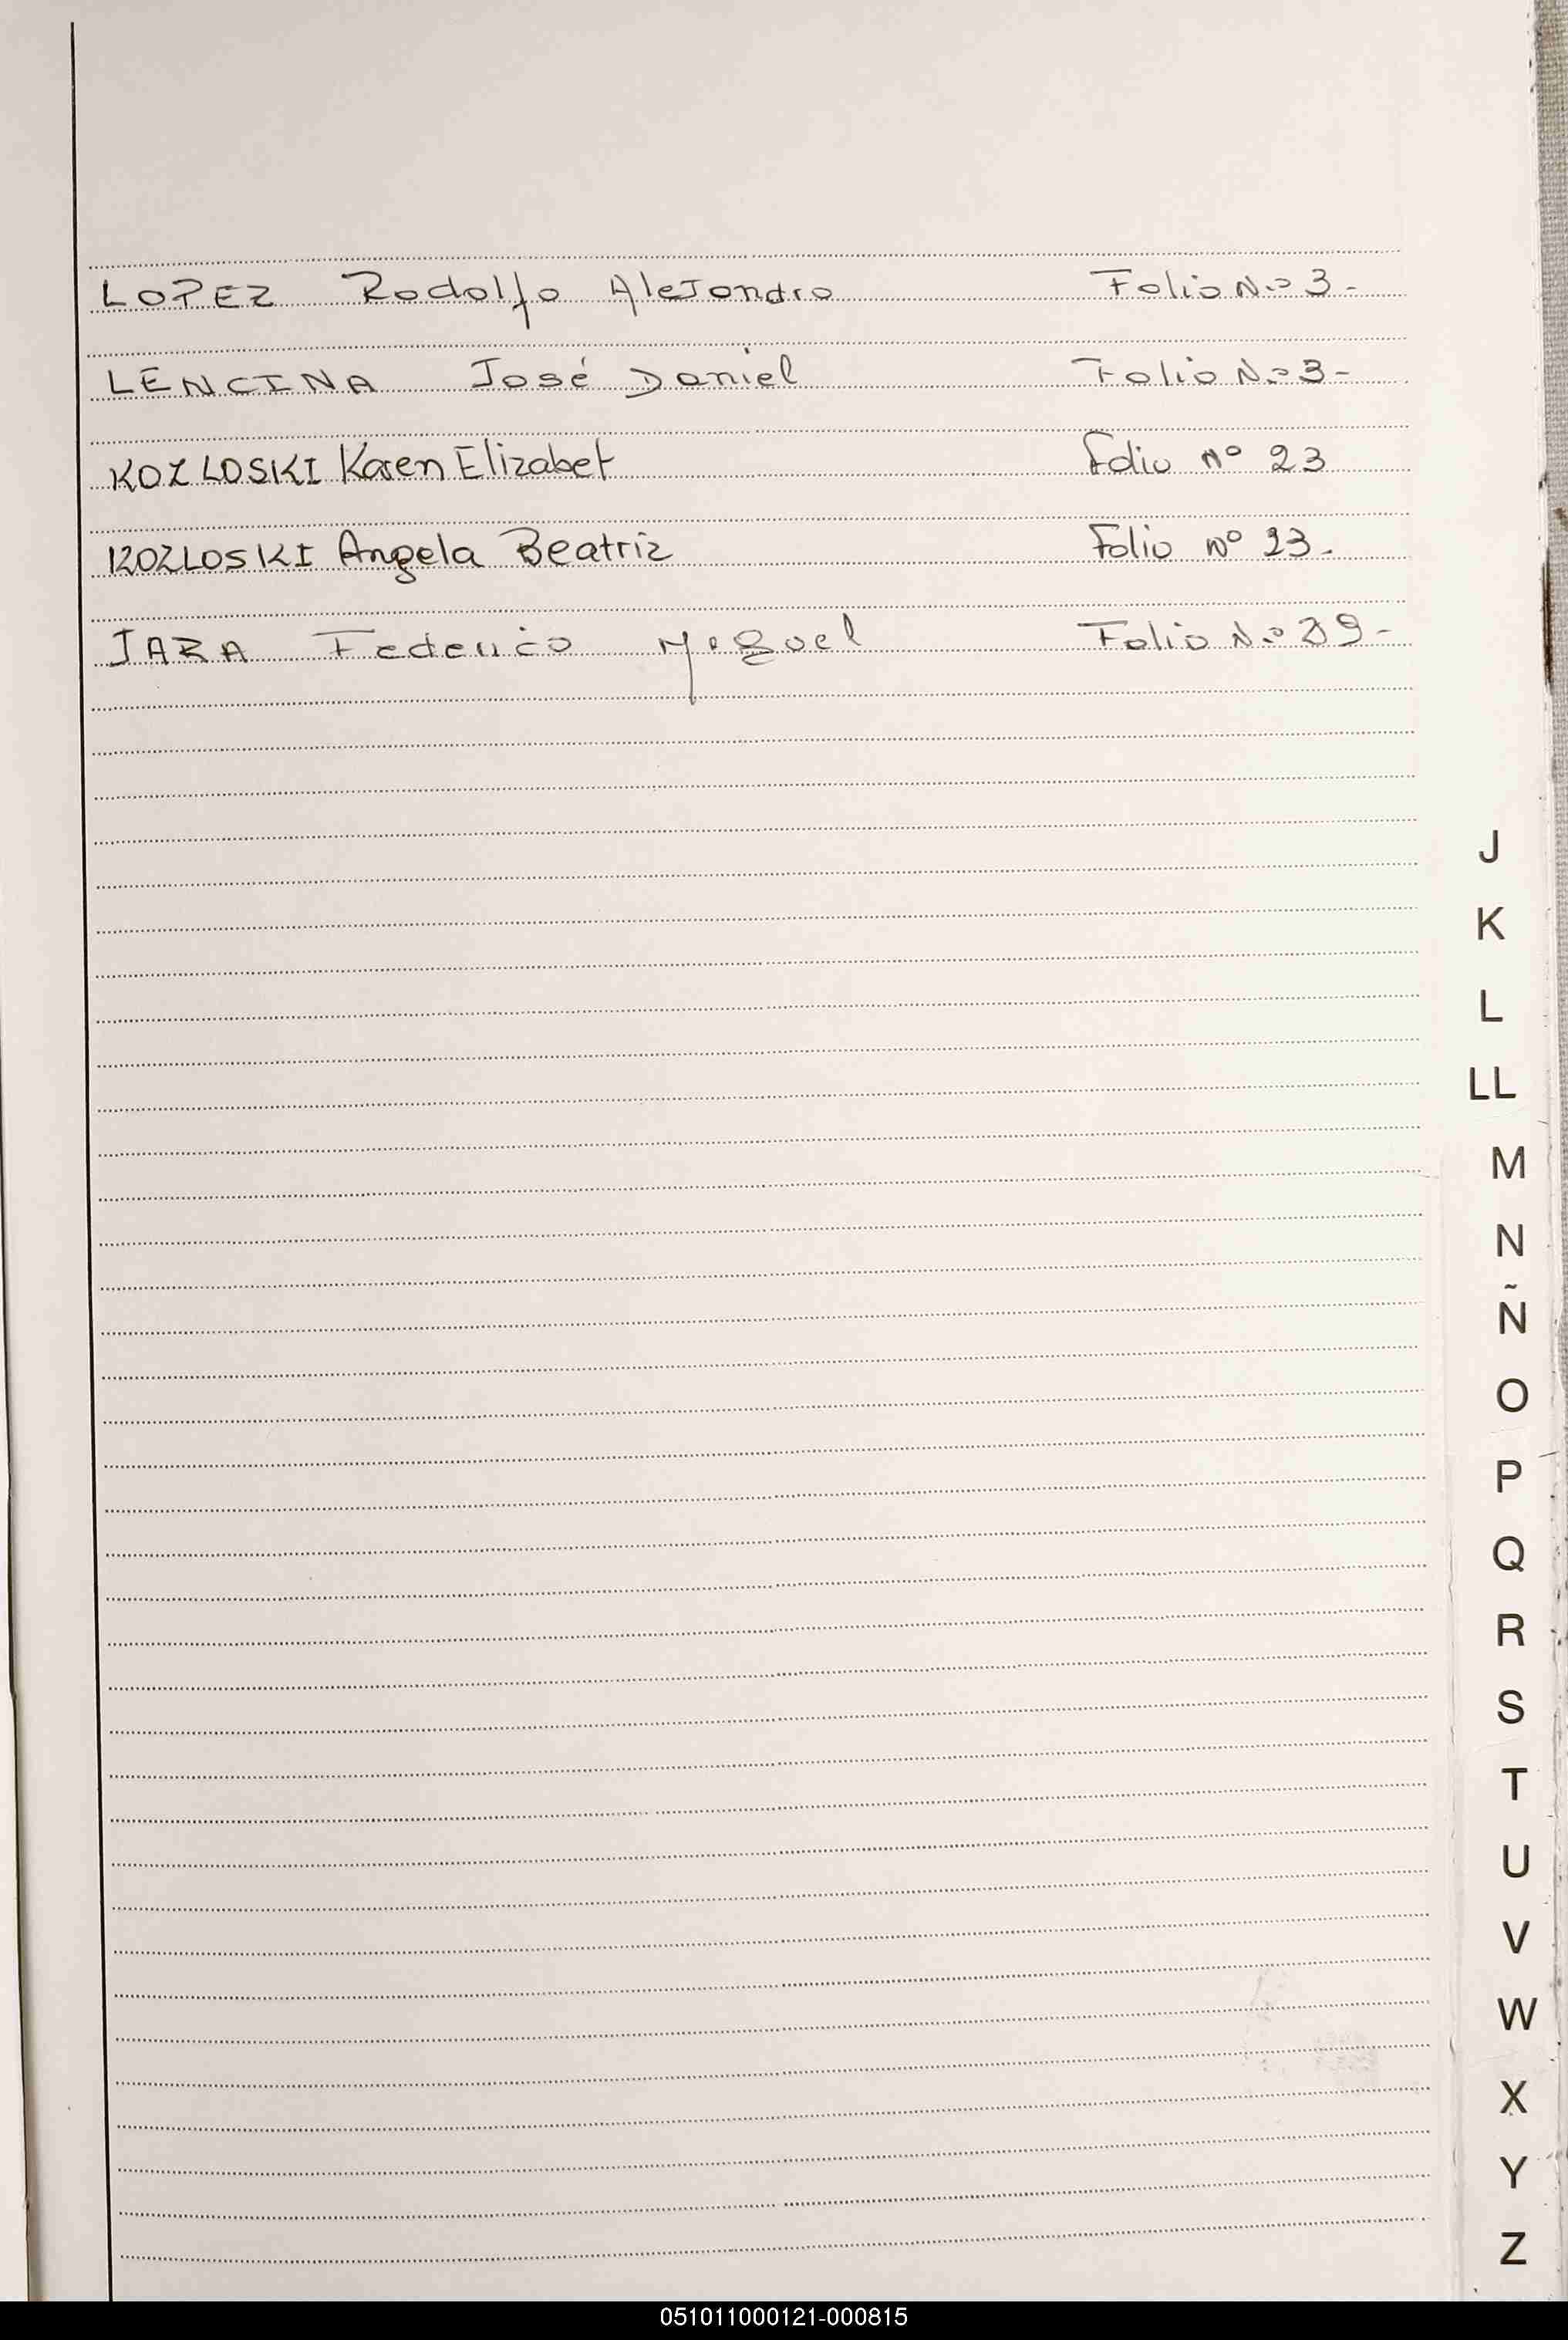 LOPEZ Rodolfo Alejandro Folio N.º 3-
LENCINA José Daniel Folio N.º 3-
KOZLOSKI Karen Elizabet Folio Nº 23
KOZLOSKI Angela Beatriz Folio Nº 23.
JARA Federico Miguel Folio N.º 39-
J
K
L
LL
M
N
Ñ
O
P
Q
R
S
T
U
V
W
X
Y
Z
051011000121-000815